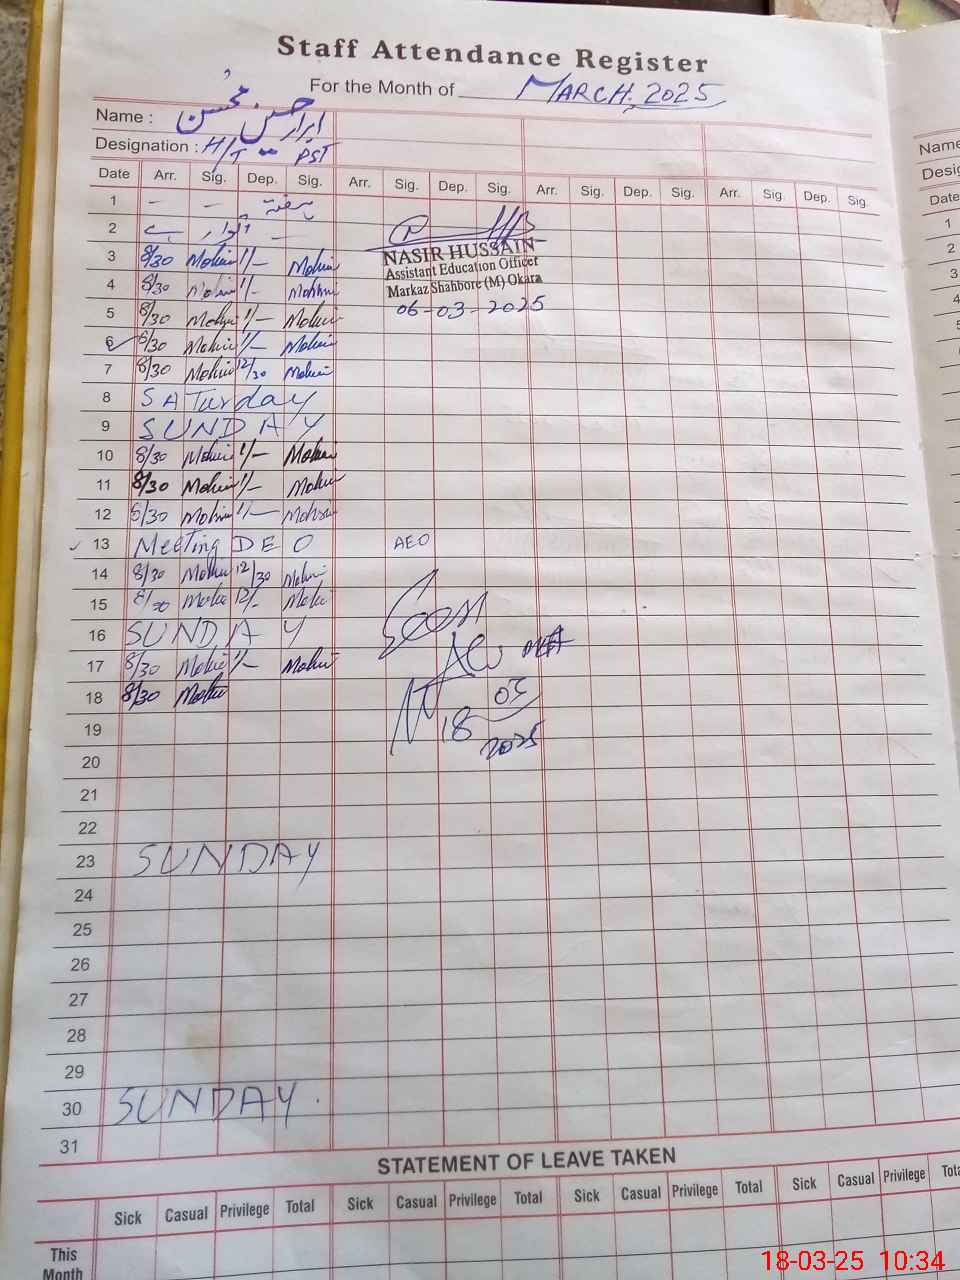 Staff Attendance Register
For the Month of MARCH. 2025
Name : ابرار حسن محسن
Designation : H/T PST
Name
Desig
Date Arr. Sig. Dep. Sig. Arr. Sig. Dep. Sig. Arr. Sig. Dep. Sig. Arr. Sig. Dep. Sig.
Date
1 — — ہفتہ
1
2 اتوار —
2
3 8/30 Mohsin 1/— Mohsin
3
NASIR HUSSAIN
Assistant Education Officer
4 8/30 Mohsin 1/— Mohsin
4
Markaz Shahbore (M) Okara
5 8/30 Mohsin 1/— Mohsin
5
06-03-2025
6 8/30 Mohsin 1/— Mohsin
7 8/30 Mohsin 12/30 Mohsin
8 SATurday
9 SUNDAY
10 8/30 Mohsin 1/— Mohsin
11 8/30 Mohsin 1/— Mohsin
12 8/30 Mohsin 1/— Mohsin
13 Meeting DEO AEO
14 8/30 Mohsin 12/30 Mohsin
15 8/30 Mohsin 12/— Mohsin
16 SUNDAY
17 8/30 Mohsin 1/— Mohsin
18 8/30 Mohsin
18 03 2025
19
20
21
22
23 SUNDAY
24
25
26
27
28
29
30 SUNDAY.
31
STATEMENT OF LEAVE TAKEN
Sick Casual Privilege Total Sick Casual Privilege Total Sick Casual Privilege Total Sick Casual Privilege
This
Month
18-03-25 10:34